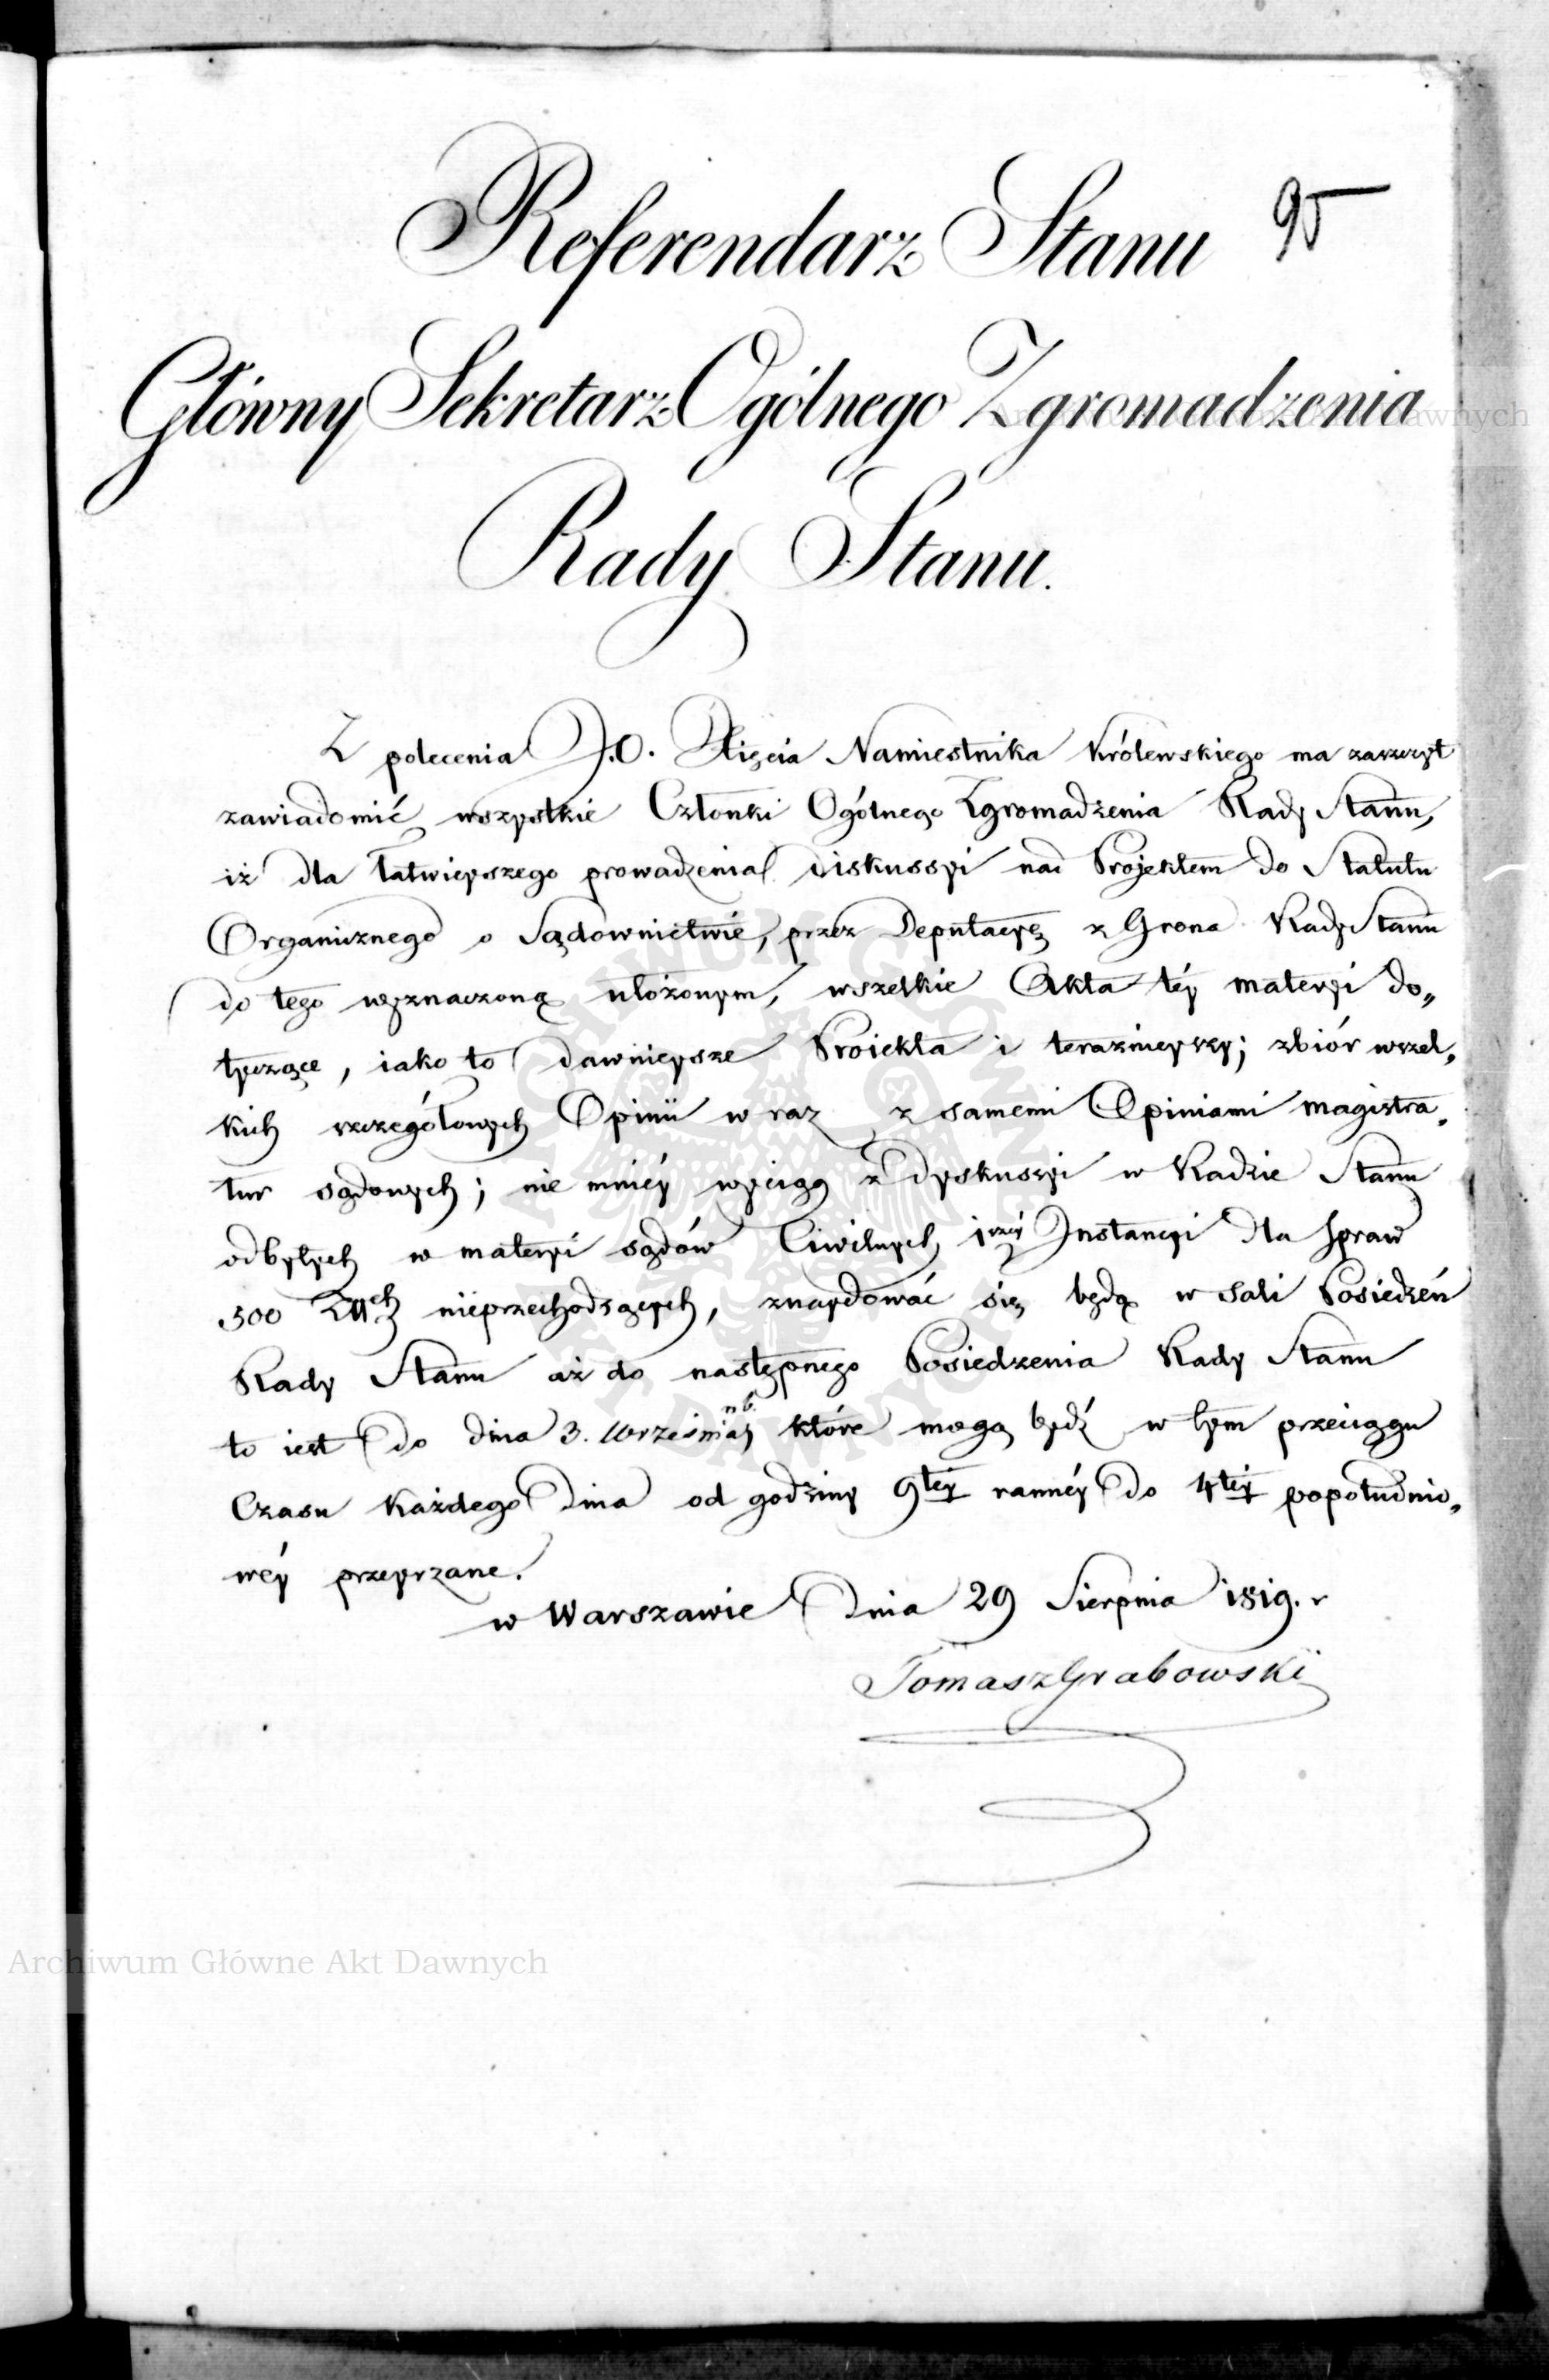 95
Referendarz Stanu
Główny Sekretarz Ogólnego Zgromadzenia
Rady Stanu.
Z polecenia J.O. Xięcia Namiestnika Królewskiego ma zaszczyt
zawiadomić wszystkie Członki Ogólnego Zgromadzenia Rady Stanu,
iż dla łatwieyszego prowadzenia diskussyi nad Projektem do Statutu
Organicznego o Sądownictwie, przez Deputacyę z Grona Rady Stanu
do tego wyznaczoną ułożonym, wszelkie Akta téy materyi do„
tyczące, iako to dawnieysze Proiekta i teraznieyszy; zbiór wszel„
kich szczegółowych Opinii w raz z samemi Opiniami magistra„
tur sądowych; nie mniéy wyciąg z dyskussyi w Radzie Stanu
odbytych w materyi sądów Ciwilnych 1széy Instancyi dla spraw
500 Złłch nieprzechodzących, znaydować się będą w Sali Posiedzeń
Rady Stanu aż do następnego Posiedzenia Rady Stanu
to iest do dnia 3. Września nb. które mogą bydź w tym przeciągu
Czasu każdego dnia od godziny 9téy rannéy do 4téy popołudnio„
wéy przeyrzane.
w Warszawie dnia 29 Sierpnia 1819. r
Tomasz Grabowski
Archiwum Główne Akt Dawnych